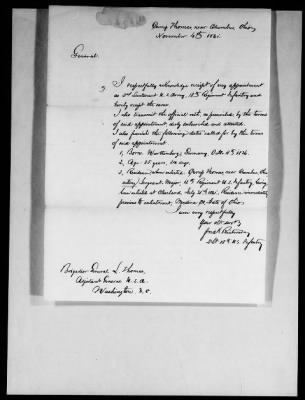 Camp Thomas, near Columbus Ohio,
November 4th 1861.
General:
I respectfully acknowledge receipt of my appointment
as 2nd Lieutenant U.S. Army, 18th Regiment Infantry and
hereby accept the same.
I also transmit the official oath, as provided, by the terms
of said appointment, duly subscribed and attested.
I also furnish the following dates called for by the terms
of said appointment
1, Born Germany, Octbr.
2, Age: 35 years, days.
3, Residence when enlisted Camp Thomas near Columbus Ohio
Sergeant Major, 18th Regiment U.S. Infantry, having
been enlisted at Cleveland July 31st 1861. Residence immediately
previous to enlistment, Medina Co. State of Ohio.
I am very respectfully
Your obt. servt.
2d Lt 18th U.S. Infantry
Brigadier General L. Thomas,
Adjutant General U.S.A.
Washington D.C.